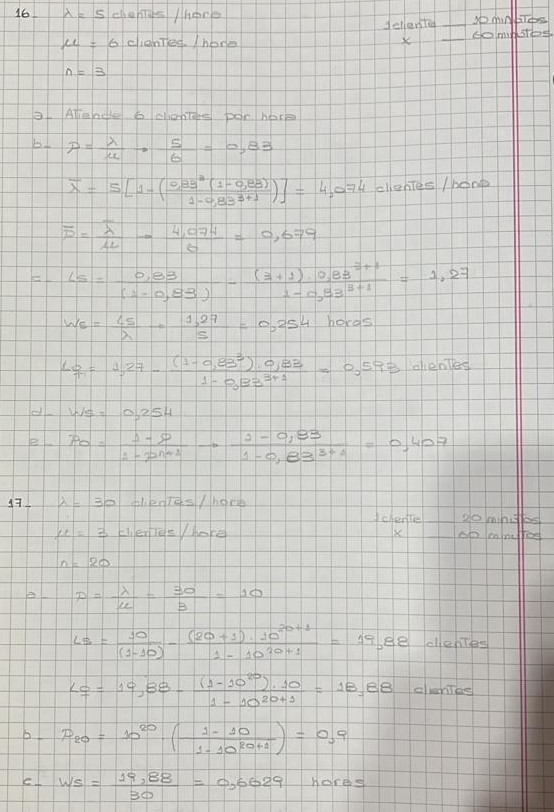 16- λ = 5 clientes /hora
1cliente — 10 minutos
μ = 6 clientes /hora
x — 60 minutos
n = 3
a- Atiende 6 clientes por hora
b- P = λ/μ → 5/6 = 0,83
λ̄ = 5[1-(0,83³(1-0,83)/1-0,83³⁺¹)] = 4,074 clientes/hora
P̄ = λ̄/μ → 4,074/6 = 0,679
c- Ls = 0,83/(1-0,83) - (3+1).0,83³⁺¹/1-0,83³⁺¹ = 1,27
Ws = Ls/λ = 1,27/5 = 0,254 horas
Lq = 1,27 - (1-0,83³).0,83/1-0,83³⁺¹ = 0,593 clientes
d- Ws = 0,254
e- Po = 1-p/1-pⁿ⁺¹ → 1-0,83/1-0,83³⁺¹ = 0,407
17- λ = 30 clientes/hora
1cliente — 20 minutos
μ = 3 clientes/hora
x — 60 minutos
n = 20
a- P = λ/μ = 30/3 = 10
Ls = 10/(1-10) - (20+1).10²⁰⁺¹/1-10²⁰⁺¹ = 19,88 clientes
Lq = 19,88 - (1-10²⁰).10/1-10²⁰⁺¹ = 18,88 clientes
b- P₂₀ = 10²⁰.(1-10/1-10²⁰⁺¹) = 0,9
c- Ws = 19,88/30 = 0,6629 horas